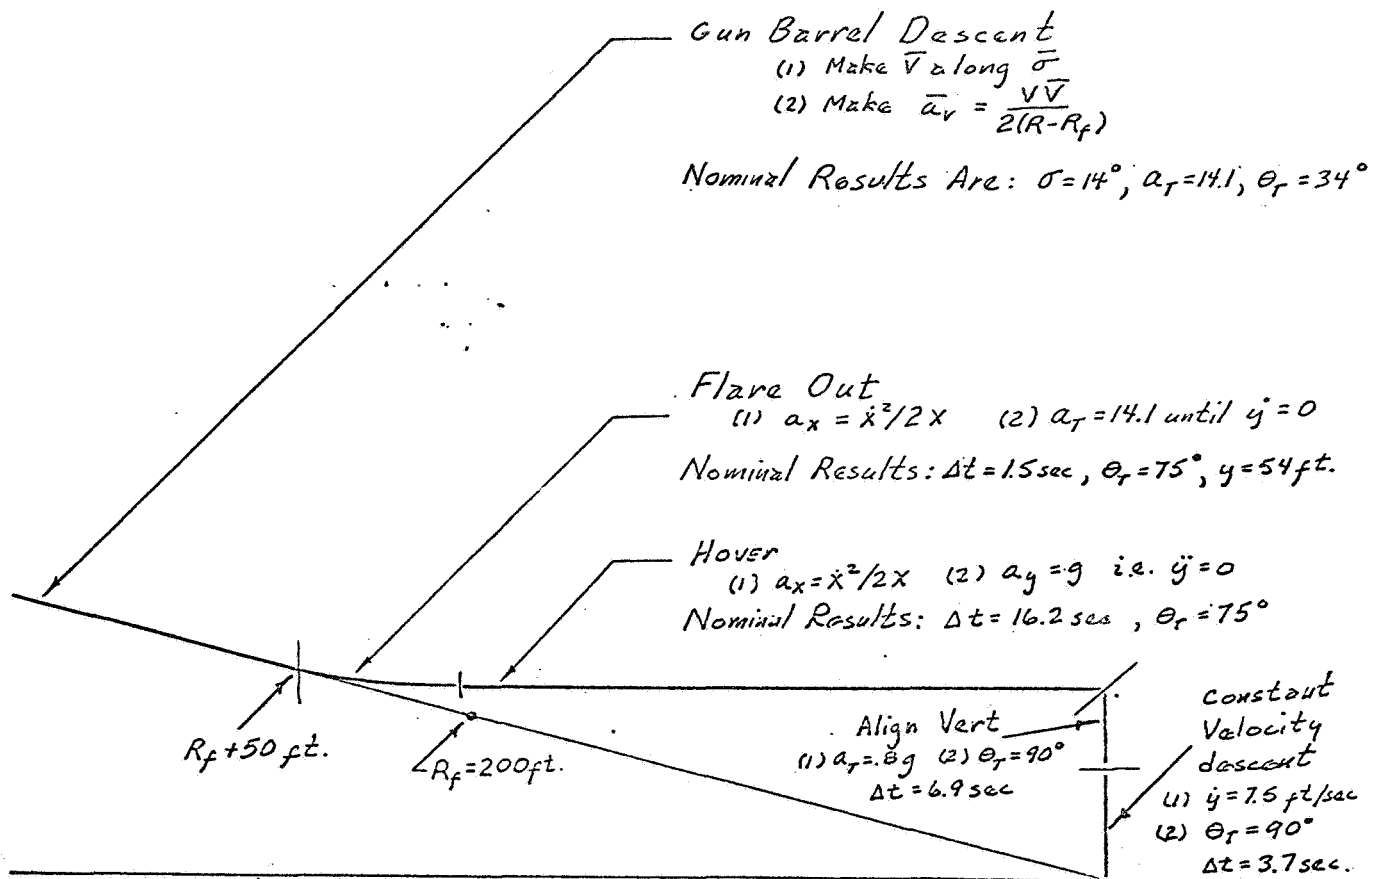 Gun Barrel Descent
(1) Make V̄ along σ̄
(2) Make āᵥ = VV̄ / 2(R-R_f)
Nominal Results Are: σ=14°, a_T=14.1, θ_T=34°
Flare Out
(1) a_x = ẋ²/2X (2) a_T=14.1 until ẏ=0
Nominal Results: Δt=1.5 sec, θ_T=75°, y=54 ft.
Hover
(1) a_x=ẋ²/2X (2) a_y=g i.e. ÿ=0
Nominal Results: Δt=16.2 sec, θ_T=75°
R_f+50 ft.
R_f=200 ft.
Align Vert
(1) a_T=.8g (2) θ_T=90°
Δt=6.9 sec
Constant
Velocity
descent
(1) ẏ=7.5 ft/sec
(2) θ_T=90°
Δt=3.7 sec.